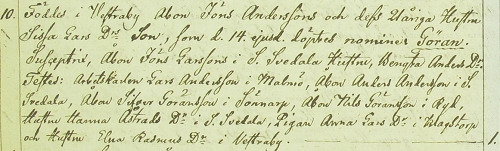 10. Föddes i Vestraby Åbon Jöns Anderssons och dess 21åriga Hustru
Sissa Lars Dr: Son, som d. 14 ejusd. döptes nomine: Göran.
Susceptrix, Åbon Jöns Larssons i S. Svedala Hustru, Bengta Anders Dr:
Testes: Arbetskarlen Lars Andersson i Malmö, Åbon Anders Andersson i S.
Svedala, Åbon Sifver Göransson i Sönnarp, Åbon Nils Göransson i Ryd,
Hustru Hanna Åstrads Dr: i S. Svedala, Pigan Anna Lars Dr: i Klagstorp
och Hustru Elna Rasmus Dr: i Vestraby. 1